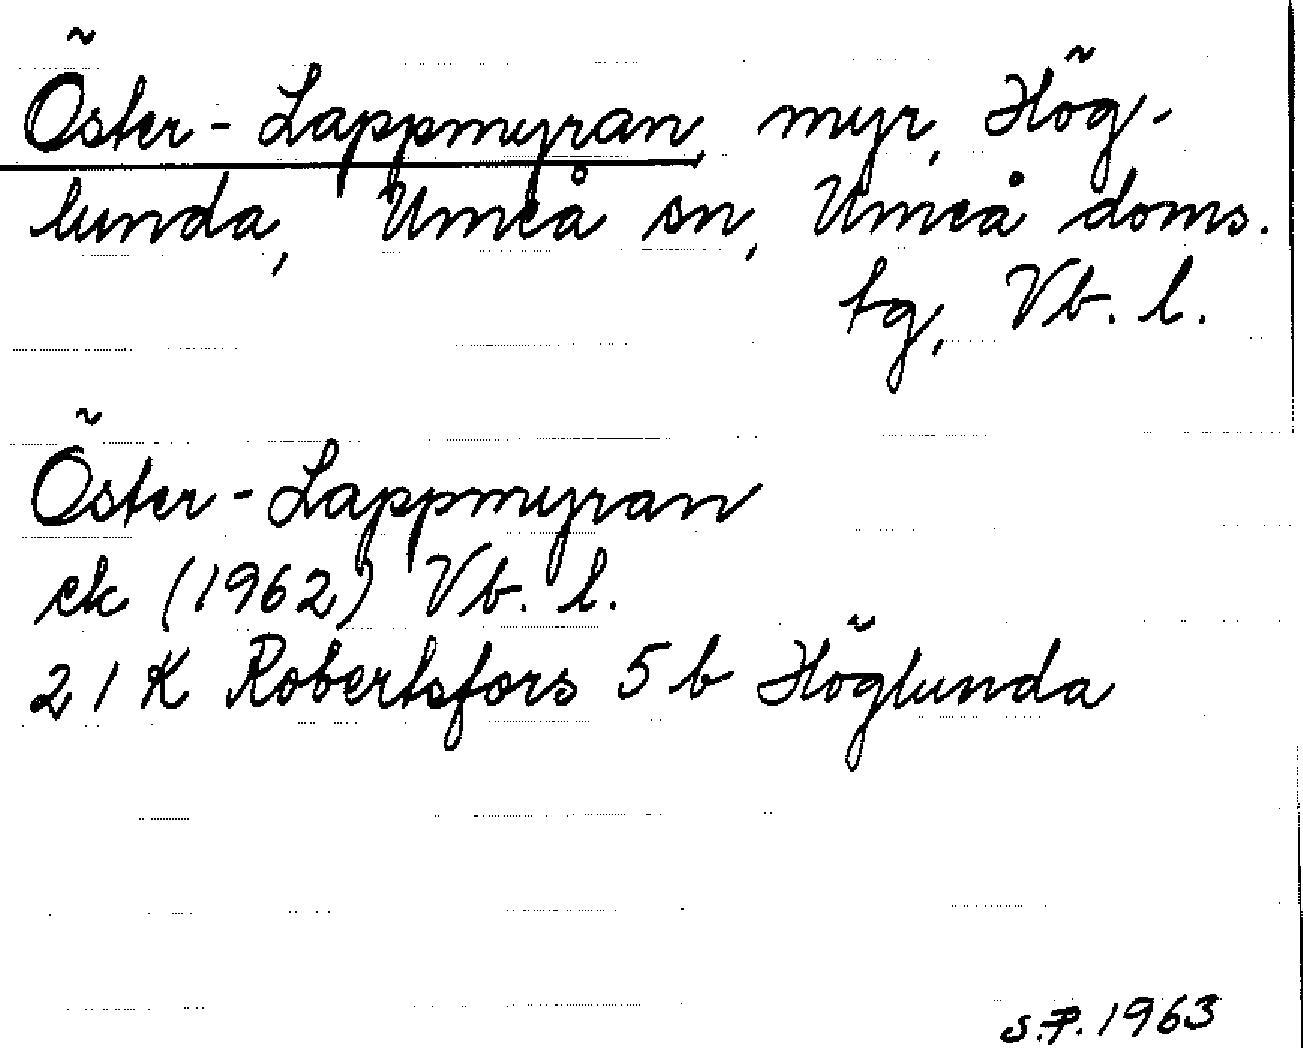 Öster-Lappmyran, myr, Hög-
lunda, Umeå sn, Umeå doms.
tg, Vb. l.
Öster-Lappmyran
ek (1962) Vb. l.
21 K Robertsfors 5 b Höglunda
S.P. 1963